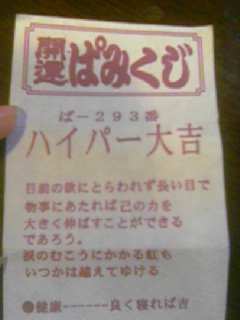 開運ぱみくじ
ぱ－293番
ハイパー大吉
目前の欲にとらわれず長い目で
物事にあたれば己の力を
大きく伸ばすことができる
であろう。
涙のむこうにかかる虹も
いつかは越えてゆける
●健康------良く寝れば吉